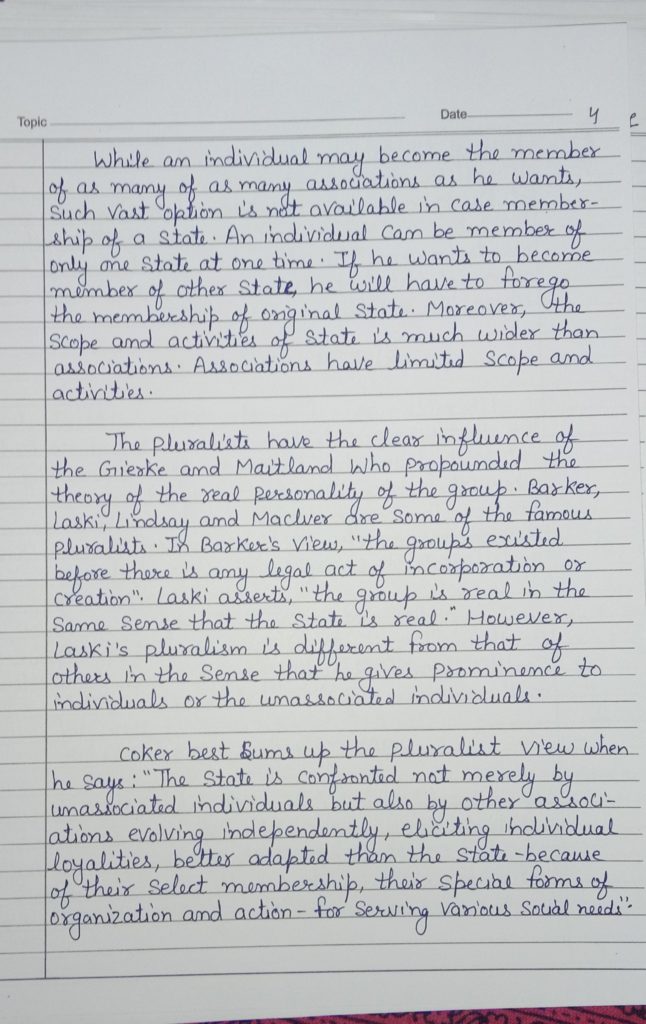 Topic Date 4
While an individual may become the member
of as many of as many associations as he wants,
such vast option is not available in case member-
ship of a state. An individual can be member of
only one state at one time. If he wants to become
member of other state, he will have to forego
the membership of original state. Moreover, the
scope and activities of state is much wider than
associations. Associations have limited scope and
activities.
The pluralists have the clear influence of
the Gierke and Maitland who propounded the
theory of the real personality of the group. Barker,
Laski, Lindsay and MacIver are some of the famous
pluralists. In Barker's view, "the groups existed
before there is any legal act of incorporation or
creation". Laski asserts, "the group is real in the
same sense that the state is real." However,
Laski's pluralism is different from that of
others in the sense that he gives prominence to
individuals or the unassociated individuals.
Coker best sums up the pluralist view when
he says: "The state is confronted not merely by
unassociated individuals but also by other associ-
ations evolving independently, eliciting individual
loyalities, better adapted than the state - because
of their select membership, their special forms of
organization and action - for serving various social needs".